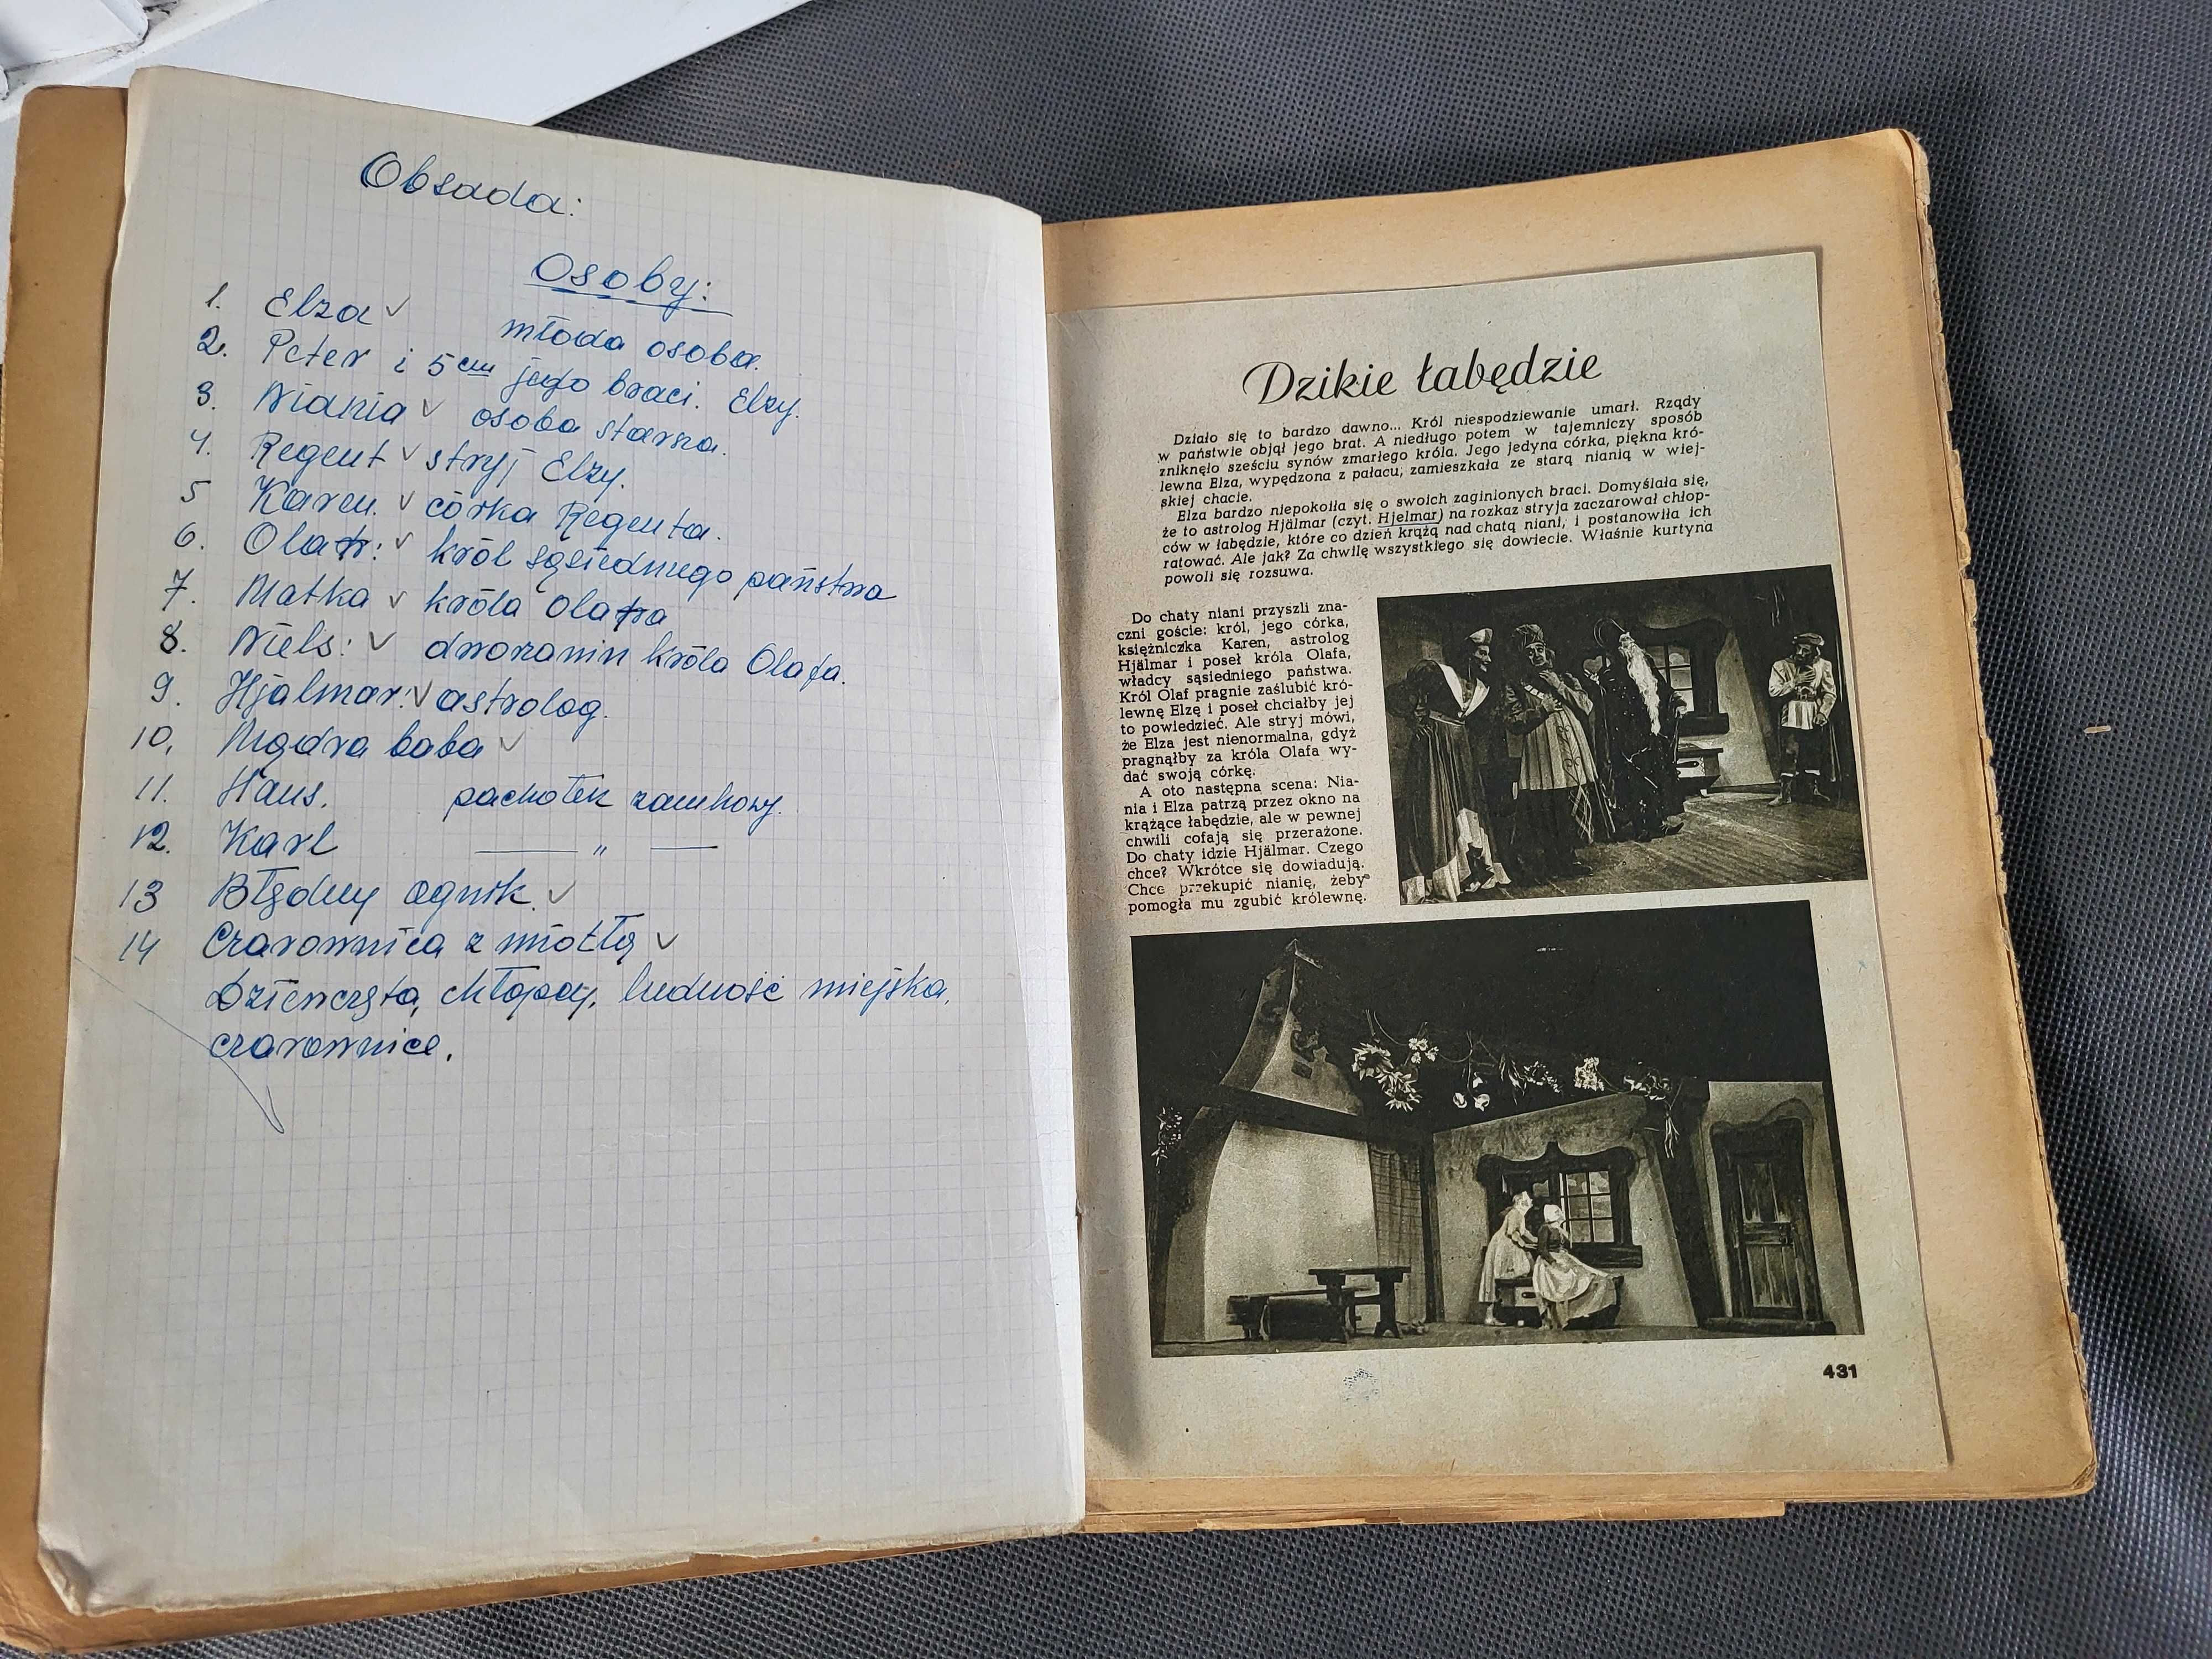 Obsada:
Osoby:
1. Elza ✓ młoda osoba.
2. Peter i 5cm jego braci. Elzy.
3. Niania ✓ osoba starsza.
4. Regent ✓ stryj Elzy.
5 Karen. ✓ córka Regenta.
6. Olaf: ✓ król sąsiedniego państwa
7. Matka ✓ króla Olafa
8. Niels: ✓ dworzanin króla Olafa.
9. Hjalmar: ✓ astrolog.
10. Mądra baba ✓
11. Hans. pachołek zamkowy.
12. Karl — " —
13 Błędny ognik. ✓
14 Czarownica z miotłą ✓
Dziewczęta, chłopcy, ludność miejska,
czarownice.
Dzikie łabędzie
Działo się to bardzo dawno... Król niespodziewanie umarł. Rządy
w państwie objął jego brat. A niedługo potem w tajemniczy sposób
zniknęło sześciu synów zmarłego króla. Jego jedyna córka, piękna kró-
lewna Elza, wypędzona z pałacu, zamieszkała ze starą nianią w wiej-
skiej chacie.
Elza bardzo niepokoiła się o swoich zaginionych braci. Domyślała się,
że to astrolog Hjälmar (czyt. Hjelmar) na rozkaz stryja zaczarował chłop-
ców w łabędzie, które co dzień krążą nad chatą niani, i postanowiła ich
ratować. Ale jak? Za chwilę wszystkiego się dowiecie. Właśnie kurtyna
powoli się rozsuwa.
Do chaty niani przyszli zna-
czni goście: król, jego córka,
księżniczka Karen, astrolog
Hjälmar i poseł króla Olafa,
władcy sąsiedniego państwa.
Król Olaf pragnie zaślubić kró-
lewnę Elzę i poseł chciałby jej
to powiedzieć. Ale stryj mówi,
że Elza jest nienormalna, gdyż
pragnąłby za króla Olafa wy-
dać swoją córkę.
A oto następna scena: Nia-
nia i Elza patrzą przez okno na
krążące łabędzie, ale w pewnej
chwili cofają się przerażone.
Do chaty idzie Hjälmar. Czego
chce? Wkrótce się dowiadują.
Chce przekupić nianię, żeby
pomogła mu zgubić królewnę.
431